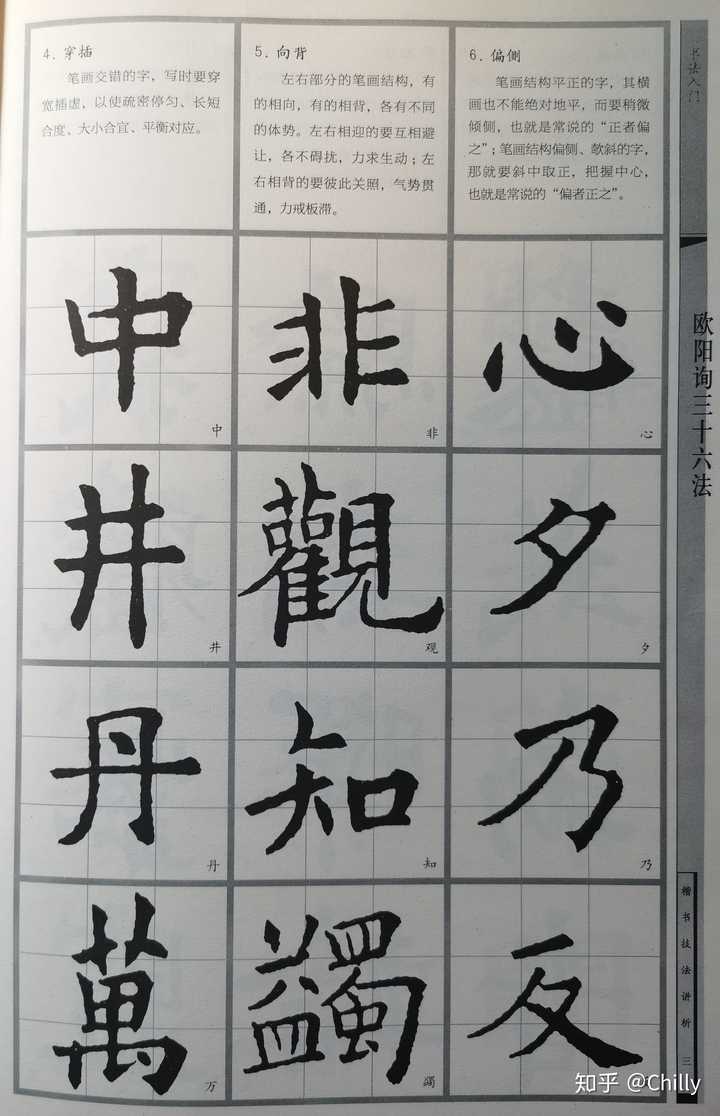 4. 穿插
笔画交错的字，写时要穿
宽插虚，以使疏密停匀、长短
合度、大小合宜、平衡对应。
5. 向背
左右部分的笔画结构，有
的相向，有的相背，各有不同
的体势。左右相迎的要互相避
让，各不碍扰，力求生动；左
右相背的要彼此关照，气势贯
通，力戒板滞。
6. 偏侧
笔画结构平正的字，其横
画也不能绝对地平，而要稍微
倾侧，也就是常说的“正者偏
之”；笔画结构偏侧、欹斜的字，
那就要斜中取正，把握中心，
也就是常说的“偏者正之”。
中
中
非
非
心
心
井
井
觀
观
夕
夕
丹
丹
知
知
乃
乃
萬
万
蠲
蠲
反
书法入门
欧阳询三十六法
楷书技法讲析
三
知乎 @Chilly